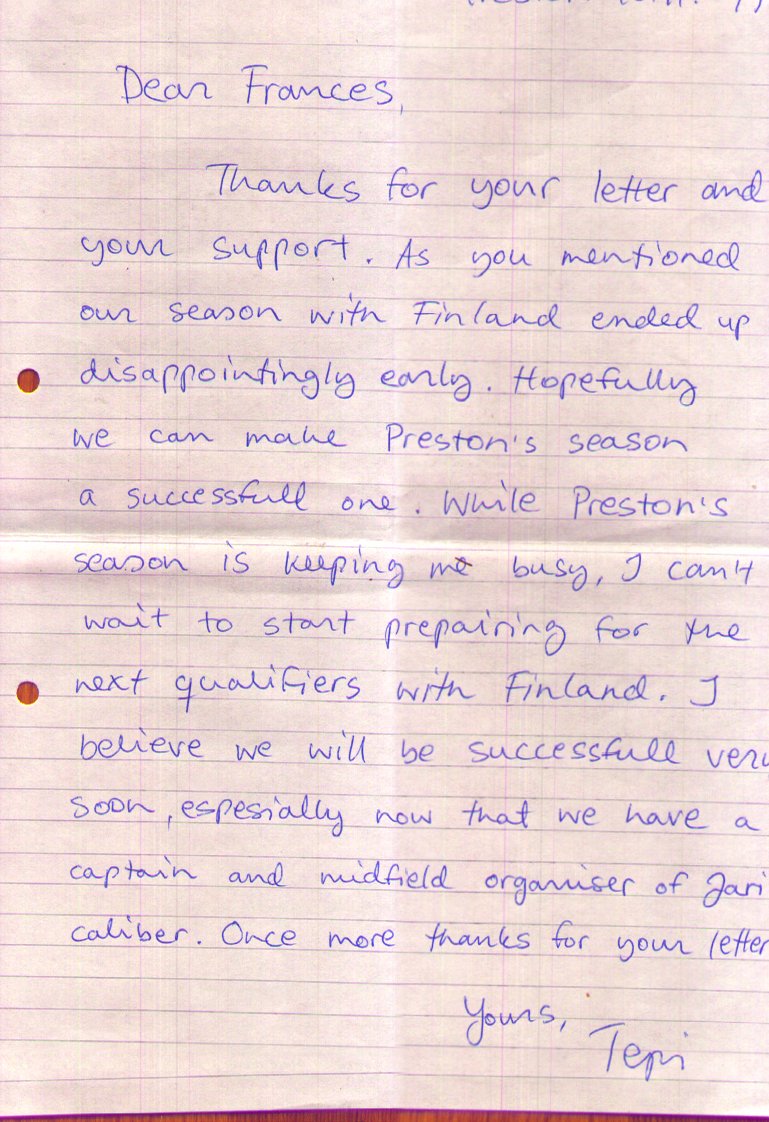 Dear Frances,
Thanks for your letter and
your support. As you mentioned
our season with Finland ended up
disappointingly early. Hopefully
we can make Preston's season
a successfull one. While Preston's
season is keeping me busy, I can't
wait to start prepairing for the
next qualifiers with Finland. I
believe we will be successfull very
soon, espesially now that we have a
captain and midfield organiser of Jari
caliber. Once more thanks for your letter
Yours,
Tepi